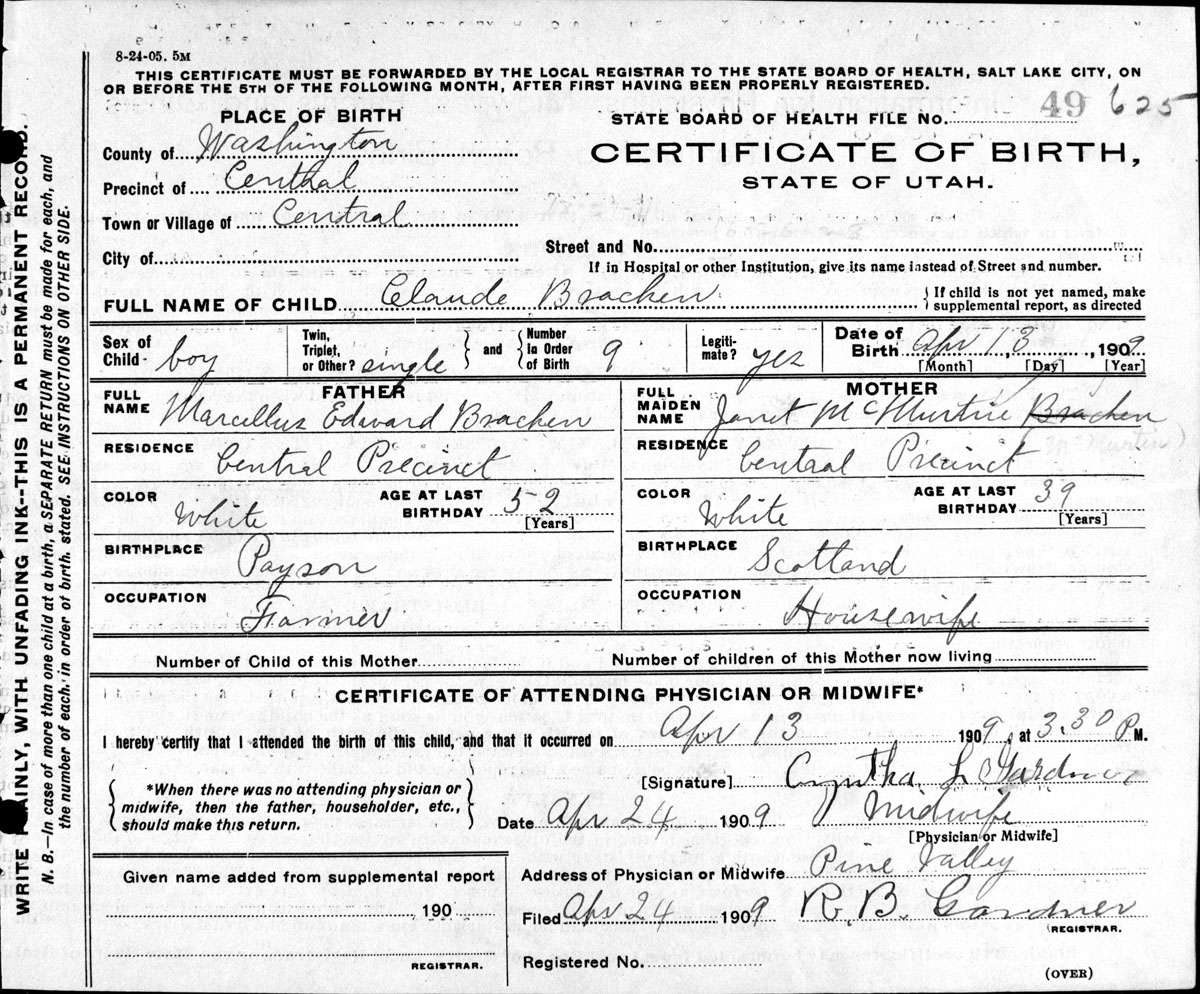 8-24-05. 5M
THIS CERTIFICATE MUST BE FORWARDED BY THE LOCAL REGISTRAR TO THE STATE BOARD OF HEALTH, SALT LAKE CITY, ON
OR BEFORE THE 5TH OF THE FOLLOWING MONTH, AFTER FIRST HAVING BEEN PROPERLY REGISTERED.
PLACE OF BIRTH
STATE BOARD OF HEALTH FILE No. 49 625
County of Washington
CERTIFICATE OF BIRTH,
Precinct of Central
STATE OF UTAH.
Town or Village of Central
Street and No.
City of
If in Hospital or other Institution, give its name instead of Street and number.
FULL NAME OF CHILD Claude Bracken
{ If child is not yet named, make
supplemental report, as directed
Sex of Child - boy
Twin, Triplet, or Other? single } and { Number In Order of Birth 9
Legiti-mate? yes
Date of Birth Apr 13, 1909
[Month] [Day] [Year]
FATHER
MOTHER
FULL NAME Marcellus Edward Bracken
FULL MAIDEN NAME Janet McMurtrie Bracken
McMurtrie)
RESIDENCE Central Precinct
RESIDENCE Central Precinct
COLOR White
AGE AT LAST BIRTHDAY 52 [Years]
COLOR White
AGE AT LAST BIRTHDAY 39 [Years]
BIRTHPLACE Payson
BIRTHPLACE Scotland
OCCUPATION Farmer
OCCUPATION Housewife
Number of Child of this Mother
Number of children of this Mother now living
CERTIFICATE OF ATTENDING PHYSICIAN OR MIDWIFE*
I hereby certify that I attended the birth of this child, and that it occurred on Apr 13 1909, at 3.30 P M.
*When there was no attending physician or
midwife, then the father, householder, etc.,
should make this return.
[Signature] Cyntha L Gardner
Date Apr 24 1909 Midwife
[Physician or Midwife]
Given name added from supplemental report
190
REGISTRAR.
Address of Physician or Midwife Pine Valley
Filed Apr 24 1909 R. B. Gardner
REGISTRAR.
Registered No.
(OVER)
WRITE PLAINLY, WITH UNFADING INK--THIS IS A PERMANENT RECORD.
N. B.—In case of more than one child at a birth, a SEPARATE RETURN must be made for each, and
the number of each, in order of birth, stated. SEE INSTRUCTIONS ON OTHER SIDE.